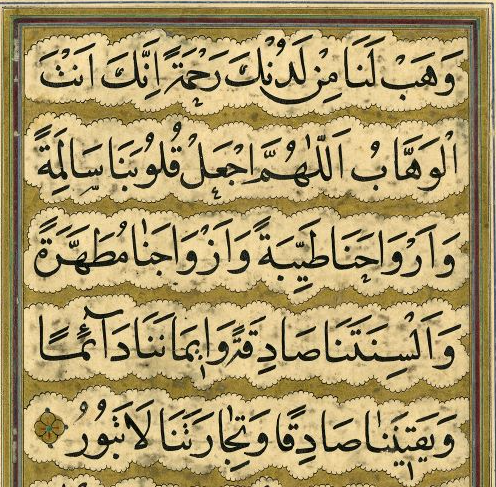 وَهَبْ لَنَا مِنْ لَدُنْكَ رَحْمَةً اِنَّكَ اَنْتَ
الْوَهَّابُ اَللّٰهُمَّ اجْعَلْ قُلُوبَنَا سَالِمَةً
وَاَرْوَاحَنَا طَيِّبَةً وَاَزْوَاجَنَا مُطَهَّرَةً
وَاَلْسِنَتَنَا صَادِقَةً وَاِيمَانَنَا دَآئِمًا
وَيَقِينَنَا صَادِقًا وَتِجَارَتَنَا لَا تَبُورُ